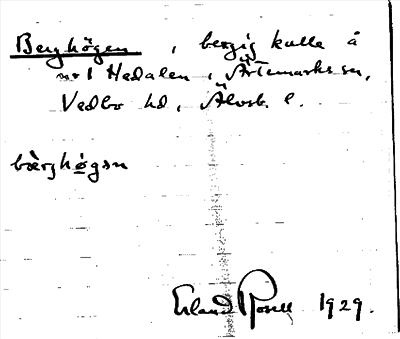 Berghögen, bergig kulle å
nr 1 Hedalen, Ärtemarks sn,
Vedbo hd, Älvsb. l.
bærghögen
Erland Rosell 1929.